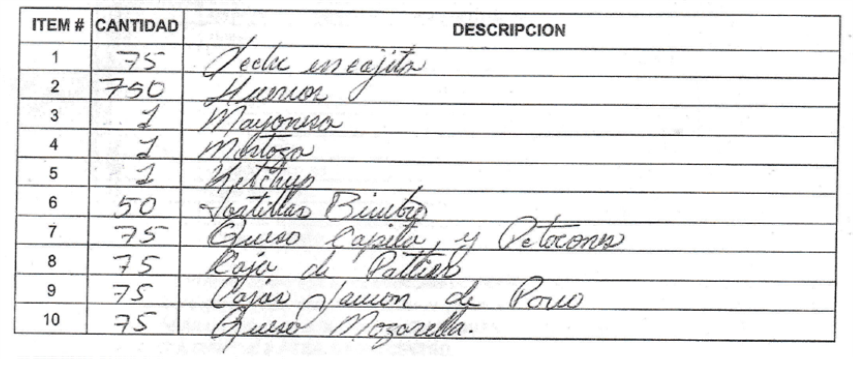 ITEM # CANTIDAD DESCRIPCION
1 75 Leche en cajita
2 750 Huevos
3 1 Mayonesa
4 1 Mostaza
5 1 Ketchup
6 50 Tortillas Bimbo
7 75 Queso Capita y
8 75 Caja de Patties
9 75 Cajas Jamon de Pavo
10 75 Queso Mozarella.